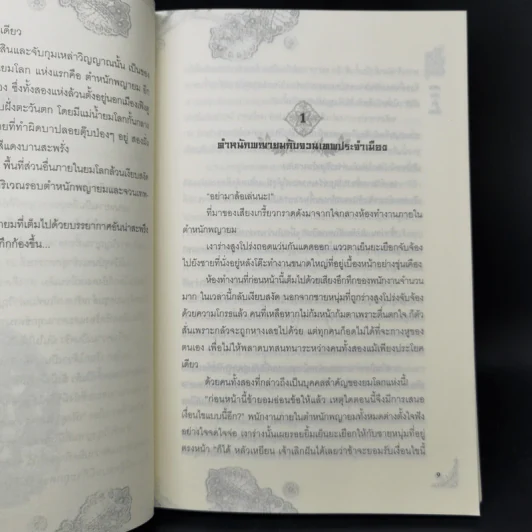 เดียว
สินและจับกุมเหล่าวิญญาณนั้น เป็นของ
ยมโลก แห่งแรกคือ ตำหนักพญายม อีก
ซึ่งทั้งสองแห่งล้วนตั้งอยู่นอกเมืองเฟิงตู
ฝั่งตะวันตก โดยมีแม่น้ำยมโลกกั้นกลาง
ที่ทำผิดบาปลอยตุ๊บป่องๆ อยู่ สองฝั่ง
สีแดงบานสะพรั่ง
พื้นที่ส่วนอื่นภายในยมโลกล้วนเงียบสงัด
บริเวณรอบตำหนักพญายมและจวนเทพ
ยมที่เต็มไปด้วยบรรยากาศอันน่าสะพรึง
กึกก้องขึ้น...
1
ตำหนักพญายมกับจวนเทพประจำเมือง
"อย่ามาล้อเล่นนะ!"
ที่มาของเสียงเกรี้ยวกราดดังมาจากใจกลางห้องทำงานภายใน
ตำหนักพญายม
เงาร่างสูงโปร่งถอดแว่นกันแดดออก แววตาเย็นยะเยือกจับจ้อง
ไปยังชายที่นั่งอยู่หลังโต๊ะทำงานขนาดใหญ่ที่อยู่เบื้องหน้าอย่างขุ่นเคือง
ห้องทำงานที่ก่อนหน้านี้เต็มไปด้วยเสียงอึกทึกของพนักงานจำนวน
มาก ในเวลานี้กลับเงียบสงัด นอกจากชายหนุ่มที่ถูกร่างสูงโปร่งจับจ้อง
ด้วยความโกรธแล้ว คนที่เหลือหากไม่ก้มหน้าก้มตาเพราะตื่นตกใจ ก็ตัว
สั่นเพราะกลัวจะถูกหางเลขไปด้วย แต่ทุกคนก็อดไม่ได้ที่จะกางหูของ
ตนเอง เพื่อไม่ให้พลาดบทสนทนาระหว่างคนทั้งสองแม้เพียงประโยค
เดียว
ด้วยคนทั้งสองที่กล่าวถึงเป็นบุคคลสำคัญของยมโลกแห่งนี้!
"ก่อนหน้านี้ข้ายอมอ่อนข้อให้แล้ว เหตุใดตอนนี้จึงมีการเสนอ
เงื่อนไขแบบนี้อีก?" พนักงานภายในตำหนักพญายมทั้งหมดต่างตั้งใจฟัง
อย่างใจจดใจจ่อ เงาร่างนั้นเผยรอยยิ้มเย็นยะเยือกให้กับชายหนุ่มที่อยู่
ตรงหน้า "ก็ได้ หลัวเหยียน เจ้าเลิกฝันได้เลยว่าข้าจะยอมรับเงื่อนไขนี้